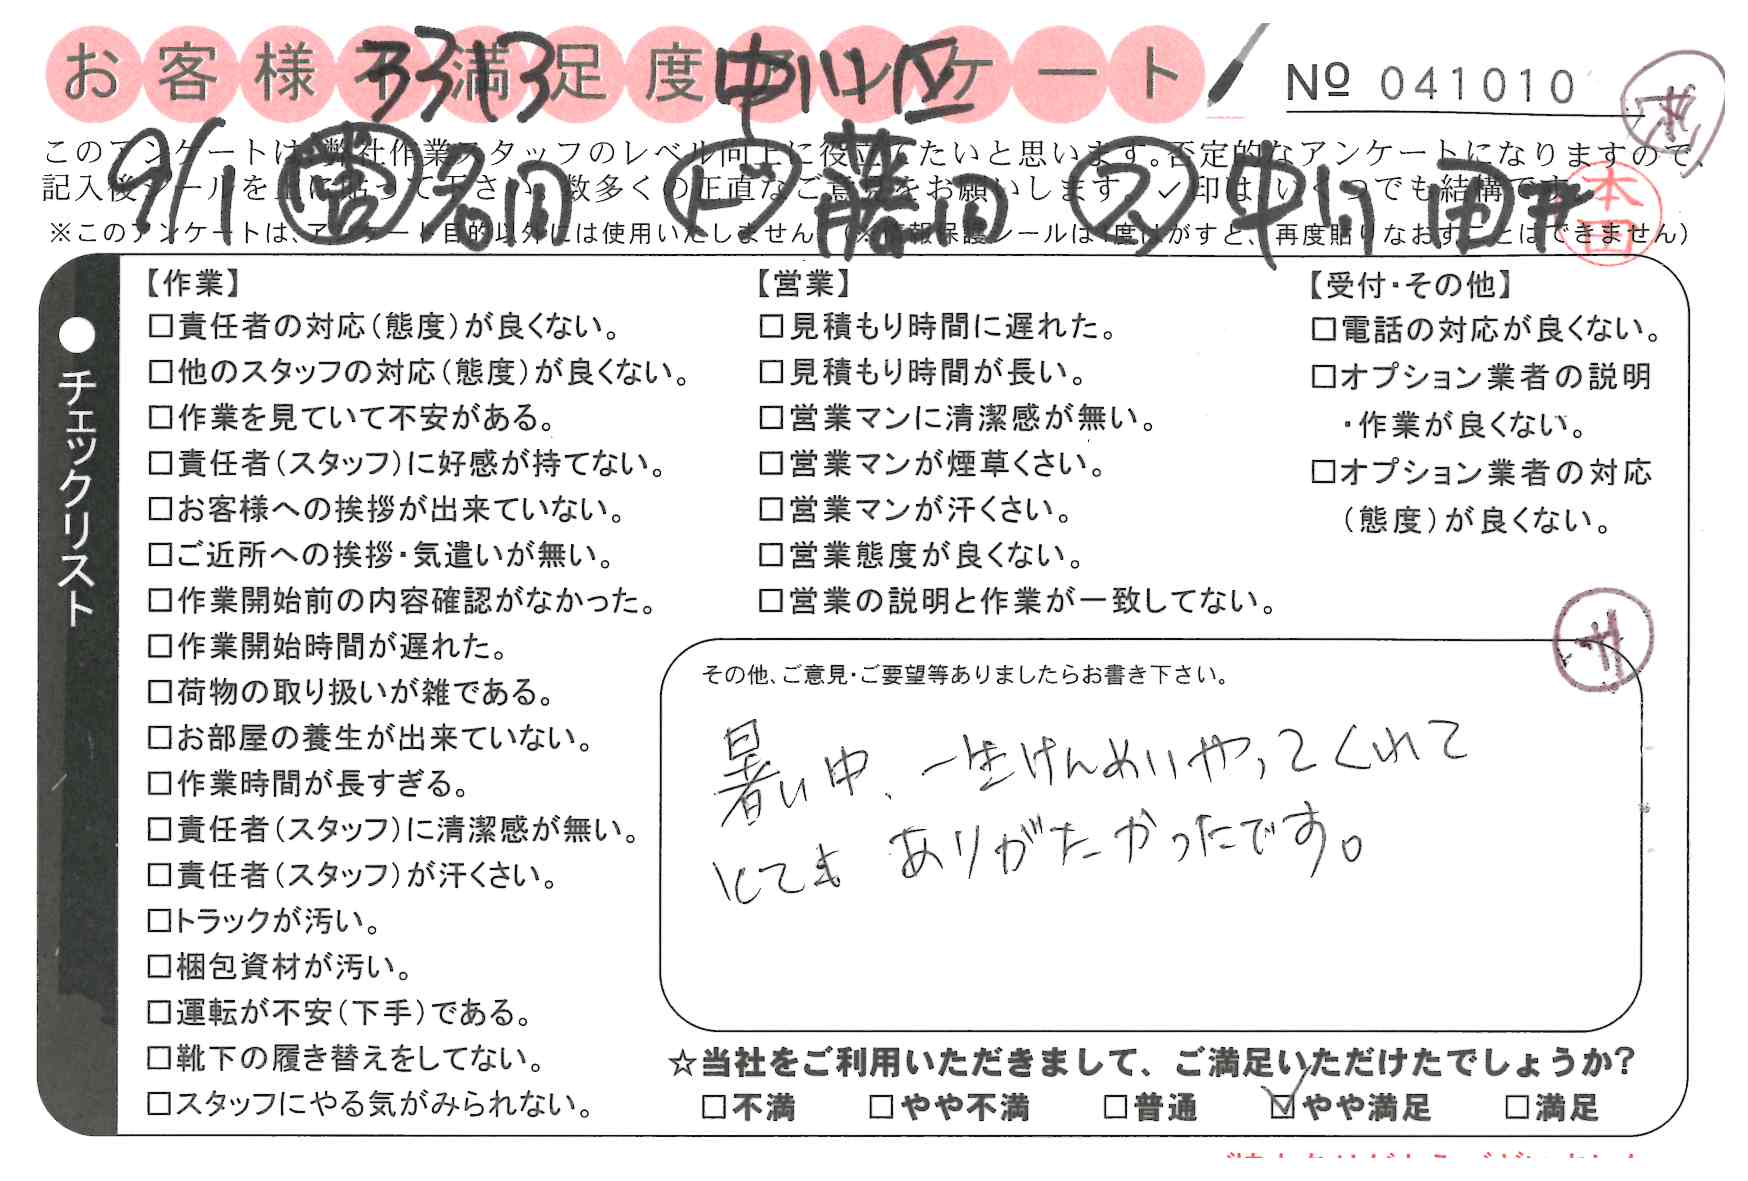 お客様不満足度アンケート
3313 中川区
№ 041010
このアンケートは、弊社作業スタッフのレベル向上に役立てたいと思います。否定的なアンケートになりますので、
記入後シールを上に貼って下さい。数多くの正直なご意見をお願いします。✓印は、いくつでも結構です。
9/1 営 名田 ド 藤田 ス 中川
※このアンケートは、アンケート目的以外には使用いたしません。(※情報保護シールは1度はがすと、再度貼りなおすことはできません)
本田
●チェックリスト
【作業】
□責任者の対応(態度)が良くない。
□他のスタッフの対応(態度)が良くない。
□作業を見ていて不安がある。
□責任者(スタッフ)に好感が持てない。
□お客様への挨拶が出来ていない。
□ご近所への挨拶・気遣いが無い。
□作業開始前の内容確認がなかった。
□作業開始時間が遅れた。
□荷物の取り扱いが雑である。
□お部屋の養生が出来ていない。
□作業時間が長すぎる。
□責任者(スタッフ)に清潔感が無い。
□責任者(スタッフ)が汗くさい。
□トラックが汚い。
□梱包資材が汚い。
□運転が不安(下手)である。
□靴下の履き替えをしてない。
□スタッフにやる気がみられない。
【営業】
□見積もり時間に遅れた。
□見積もり時間が長い。
□営業マンに清潔感が無い。
□営業マンが煙草くさい。
□営業マンが汗くさい。
□営業態度が良くない。
□営業の説明と作業が一致してない。
【受付・その他】
□電話の対応が良くない。
□オプション業者の説明
・作業が良くない。
□オプション業者の対応
(態度)が良くない。
その他、ご意見・ご要望等ありましたらお書き下さい。
暑い中、一生けんめいやってくれて
とても ありがたかったです。
☆当社をご利用いただきまして、ご満足いただけたでしょうか?
□不満 □やや不満 □普通 ☑やや満足 □満足